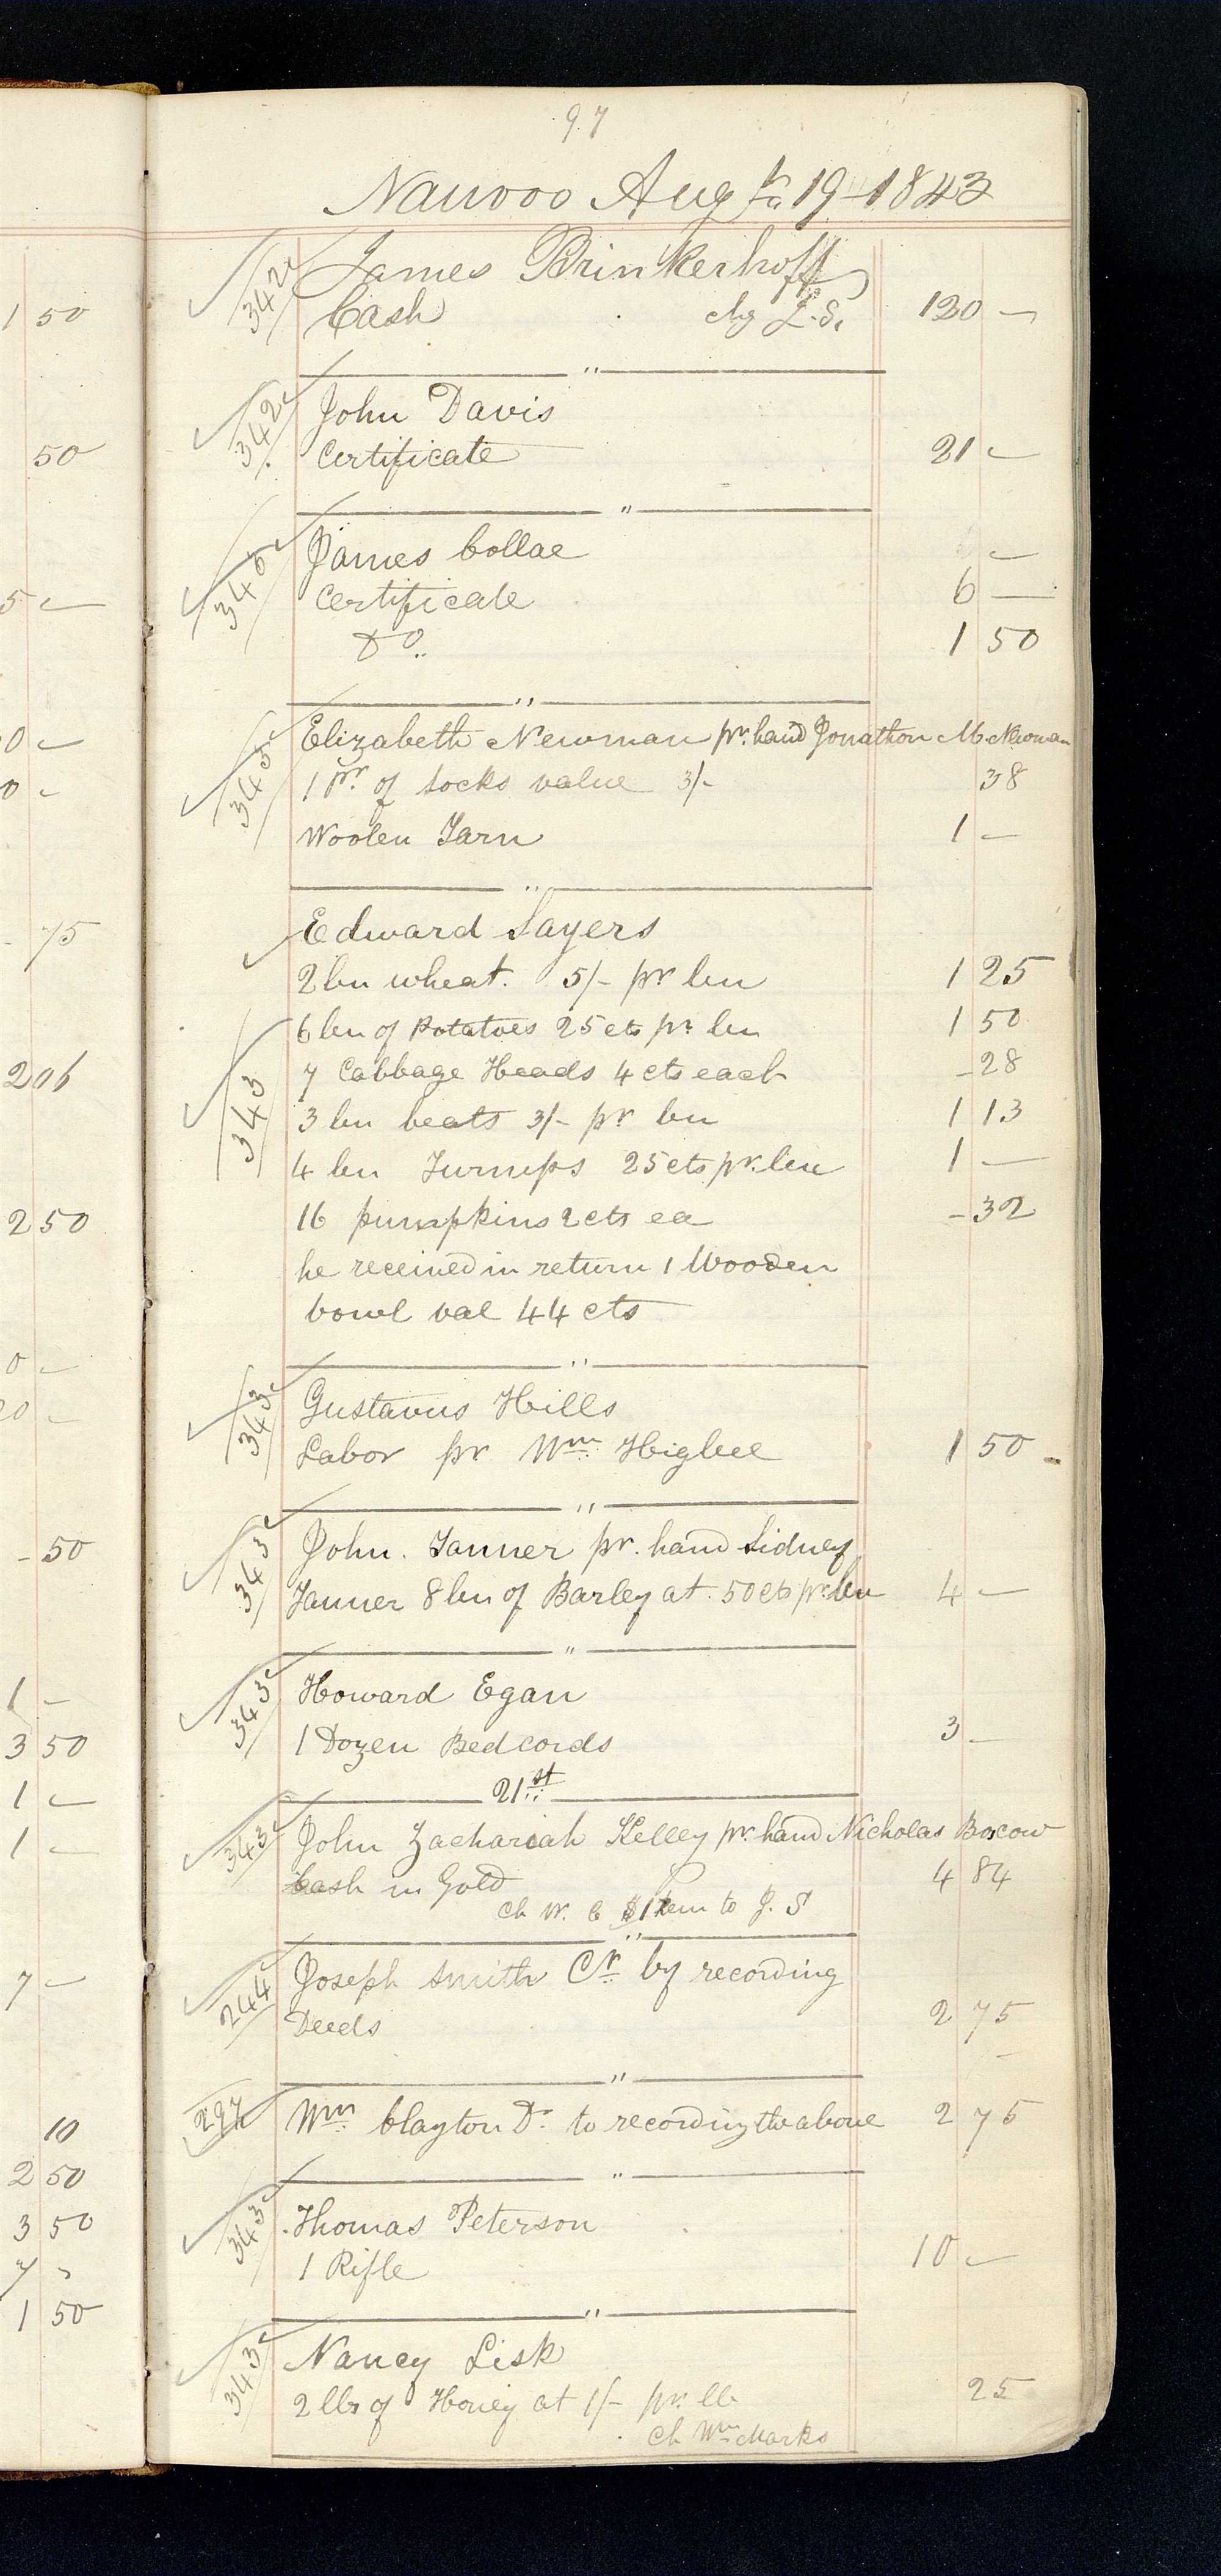 97
Nauvoo Aug 19 1843
342 James Brinkerhoff
1 50
Cash chg L.S. 120 —
342 John Davis
50
Certificate 21 —
340 James Collae —
5 —
Certificate 6 —
Do 1 50
0 —
343 Elizabeth Newman pr. hand Jonathon M Newman
0 —
1 Pr. of Socks value 3/- 38
Woolen Yarn 1 —
- 75
Edward Sayers
2 bu wheat. 5/- pr bu 1 25
6 bu of Potatoes 25 cts pr bu 1 50
206
343 7 Cabbage Heads 4 cts each - 28
3 bu beats 3/- pr bu 1 13
4 bu Turnips 25 cts pr. bu 1 —
2 50
16 pumpkins 2 cts ea - 32
he received in return 1 Wooden
bowl val 44 cts
0 —
20 —
343 Gustavus Hills
Labor pr Wm Higbee 1 50
- 50
343 John. Tanner pr. hand Sidney
Tanner 8 bu of Barley at. 50 cts pr. bu 4 —
1 —
343 Howard Egan
3 50
1 Dozen Bedcords 3 —
1 —
21st
1 —
343 John Zachariah Kelley pr. hand Nicholas Boscow
Cash in Gold 4 84
Ch W. C to J. S
7 —
244 Joseph Smith Cr. by recording
Deeds 2 75
10
297 Wm Clayton Dr to recording the above 2 75
2 50
3 50
343 Thomas Peterson
7 -
1 Rifle 10 —
1 50
343 Nancy Lisk
2 lbs of Honey at 1/- pr. lb 25
Ch Wm Marks